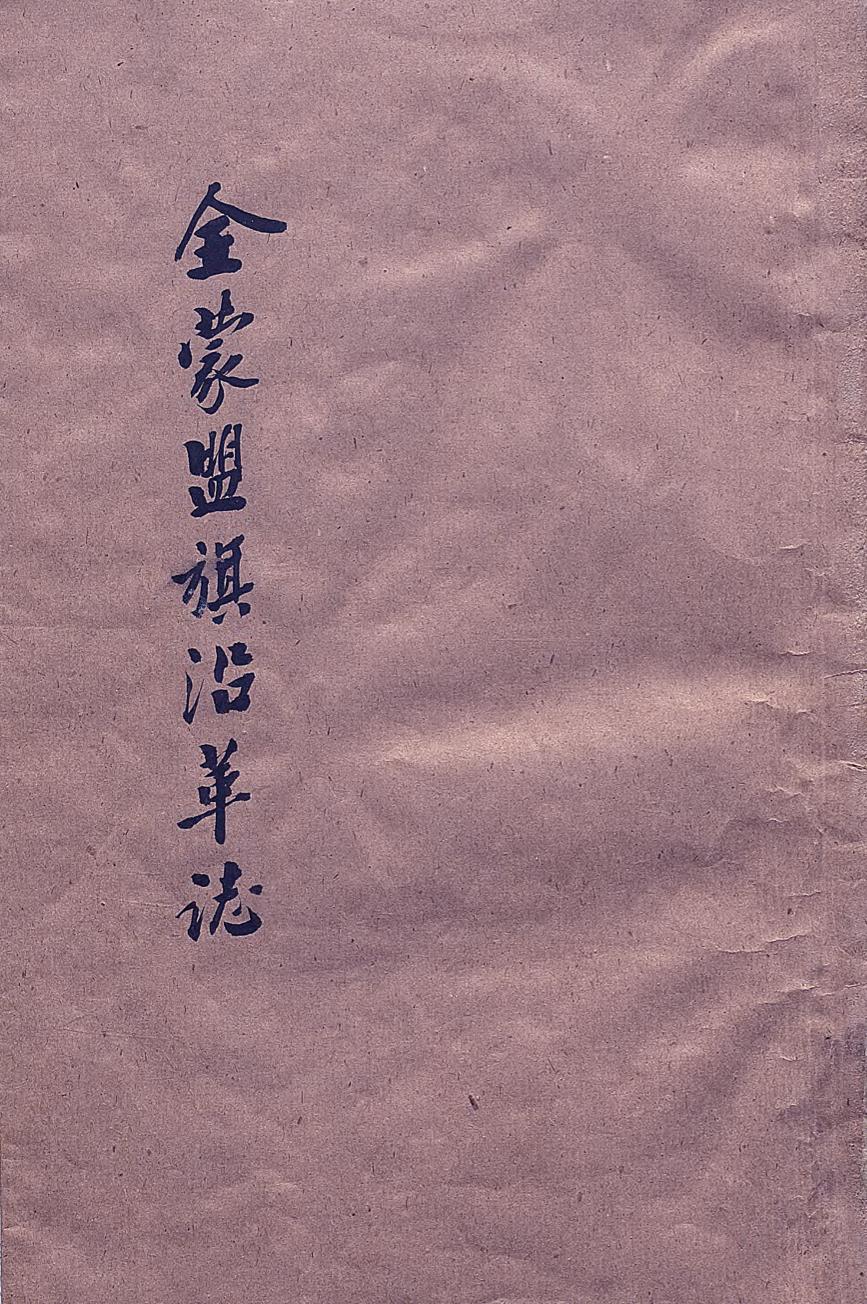 全蒙盟旗沿革誌